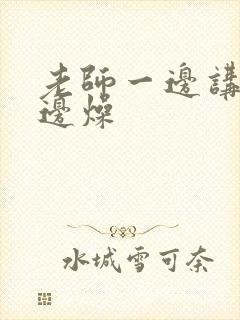 老師一邊講
邊燥
水城雪可奈